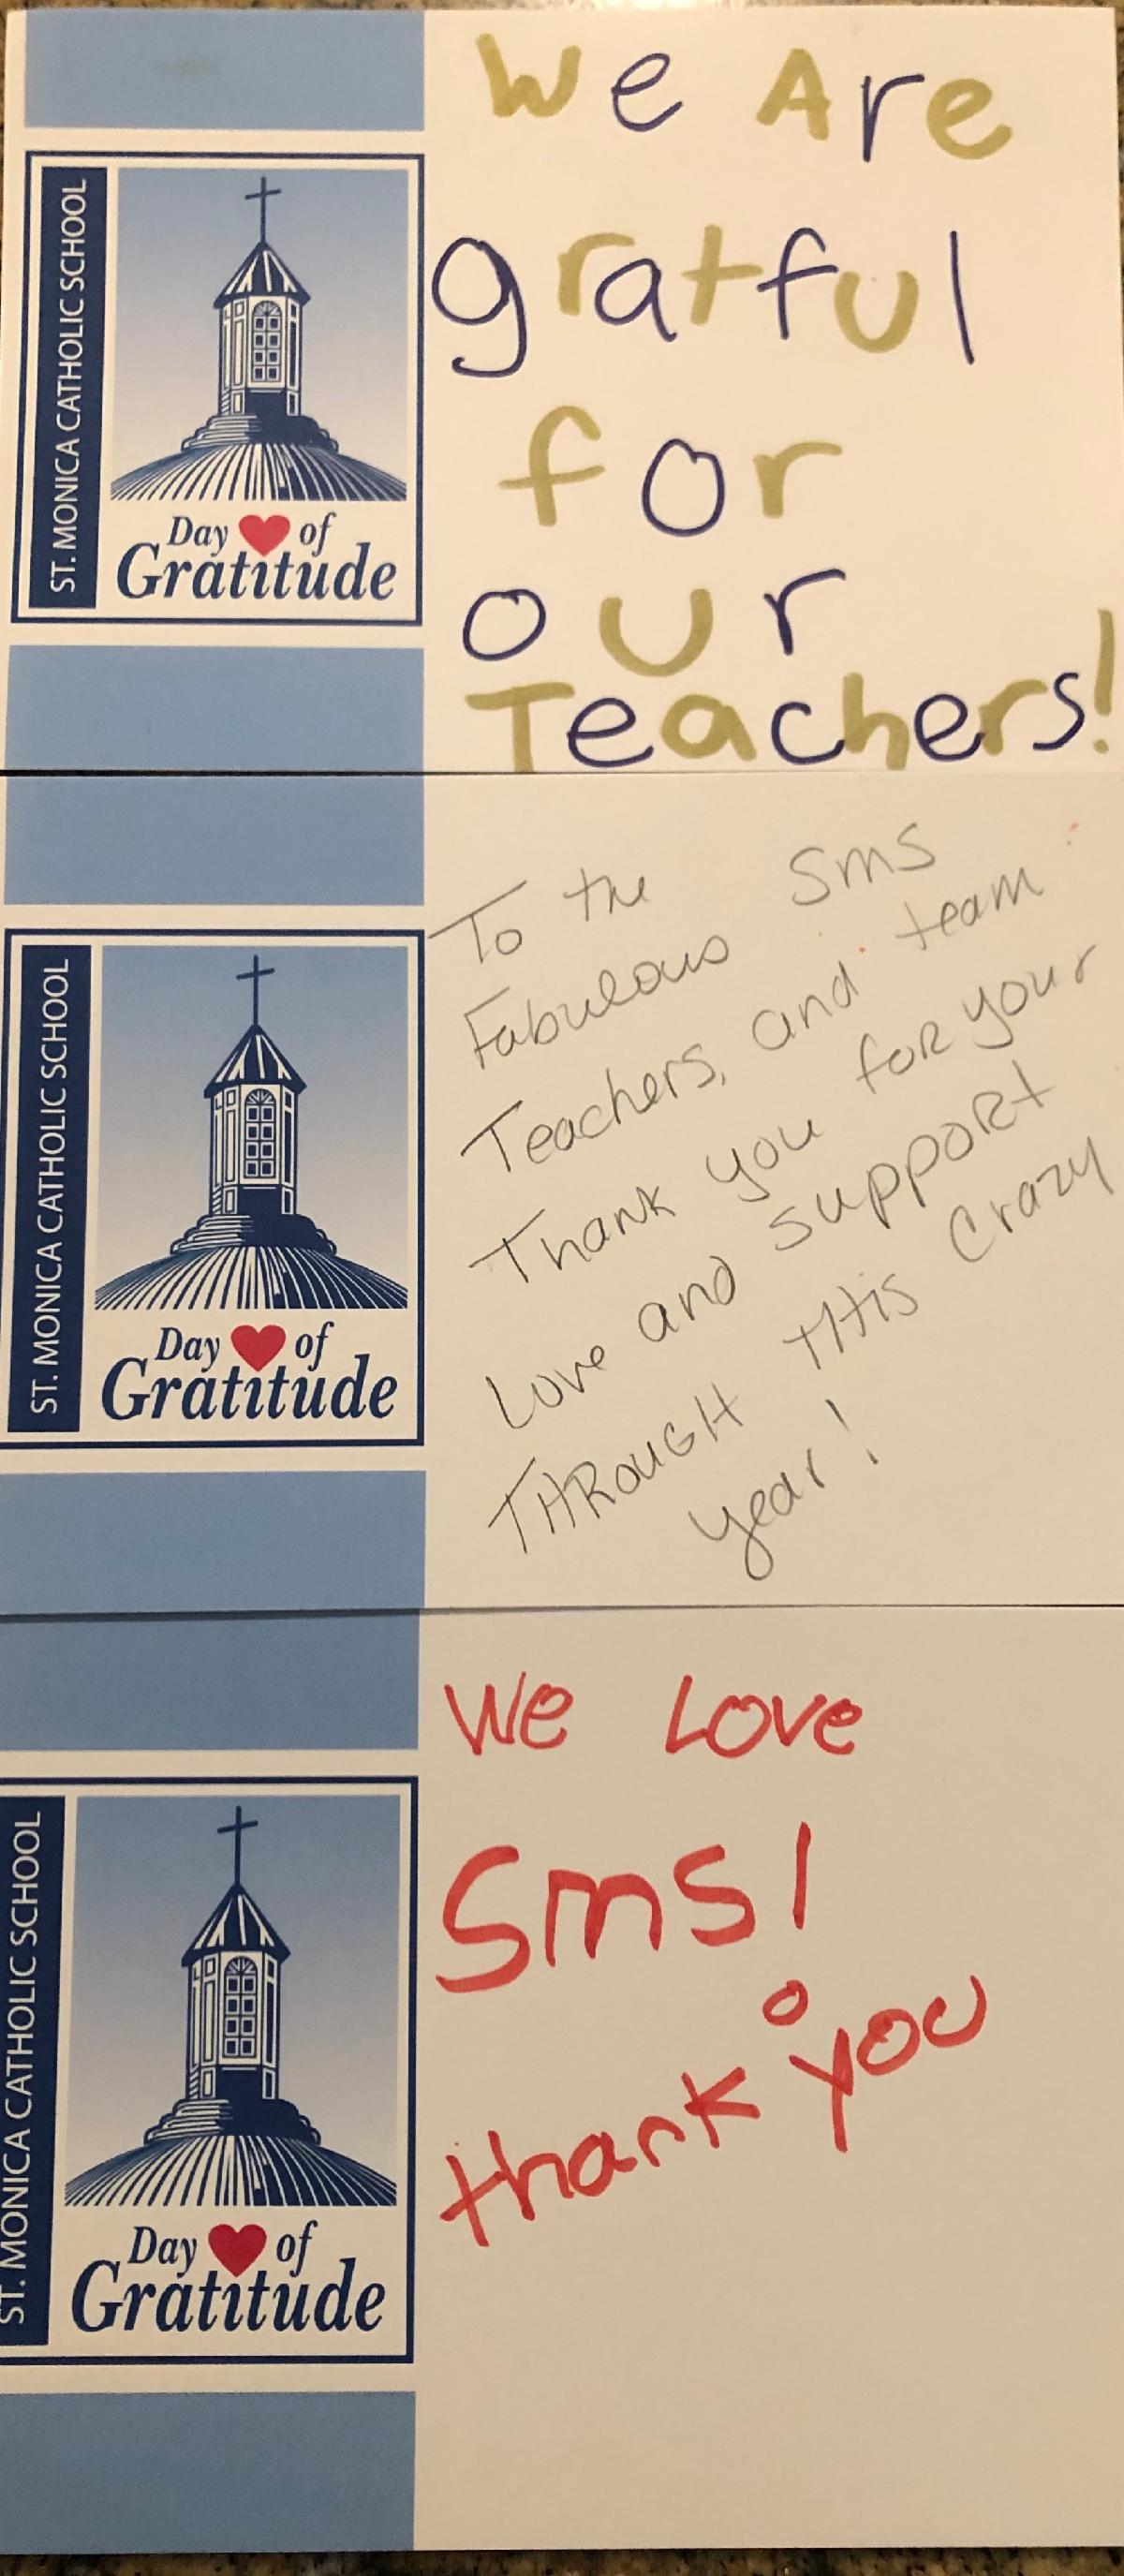 We Are
gratful
for
our
Teachers!
ST. MONICA CATHOLIC SCHOOL
Day of
Gratitude
To the Sms
Fabulous
Teachers, and team
Thank you for your
Love and support
THROUGH THis Crazy
year!
ST. MONICA CATHOLIC SCHOOL
Day of
Gratitude
We Love
Sms!
thank you
ST. MONICA CATHOLIC SCHOOL
Day of
Gratitude